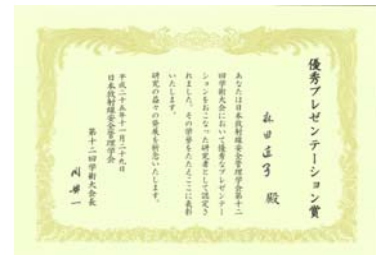 優秀プレゼンテーション賞
田直子 殿
あなたは日本放射線安全管理学会第十二
回学術大会において優秀なプレゼンテー
ションをおこなった研究者として認定さ
れました。その学夢をたたえここに表彰
いたします。
研究の益々の発展を祈念いたします。
平成二十五年十一月二十九日
日本放射線安全管理学会
第十二回学術大会長
一